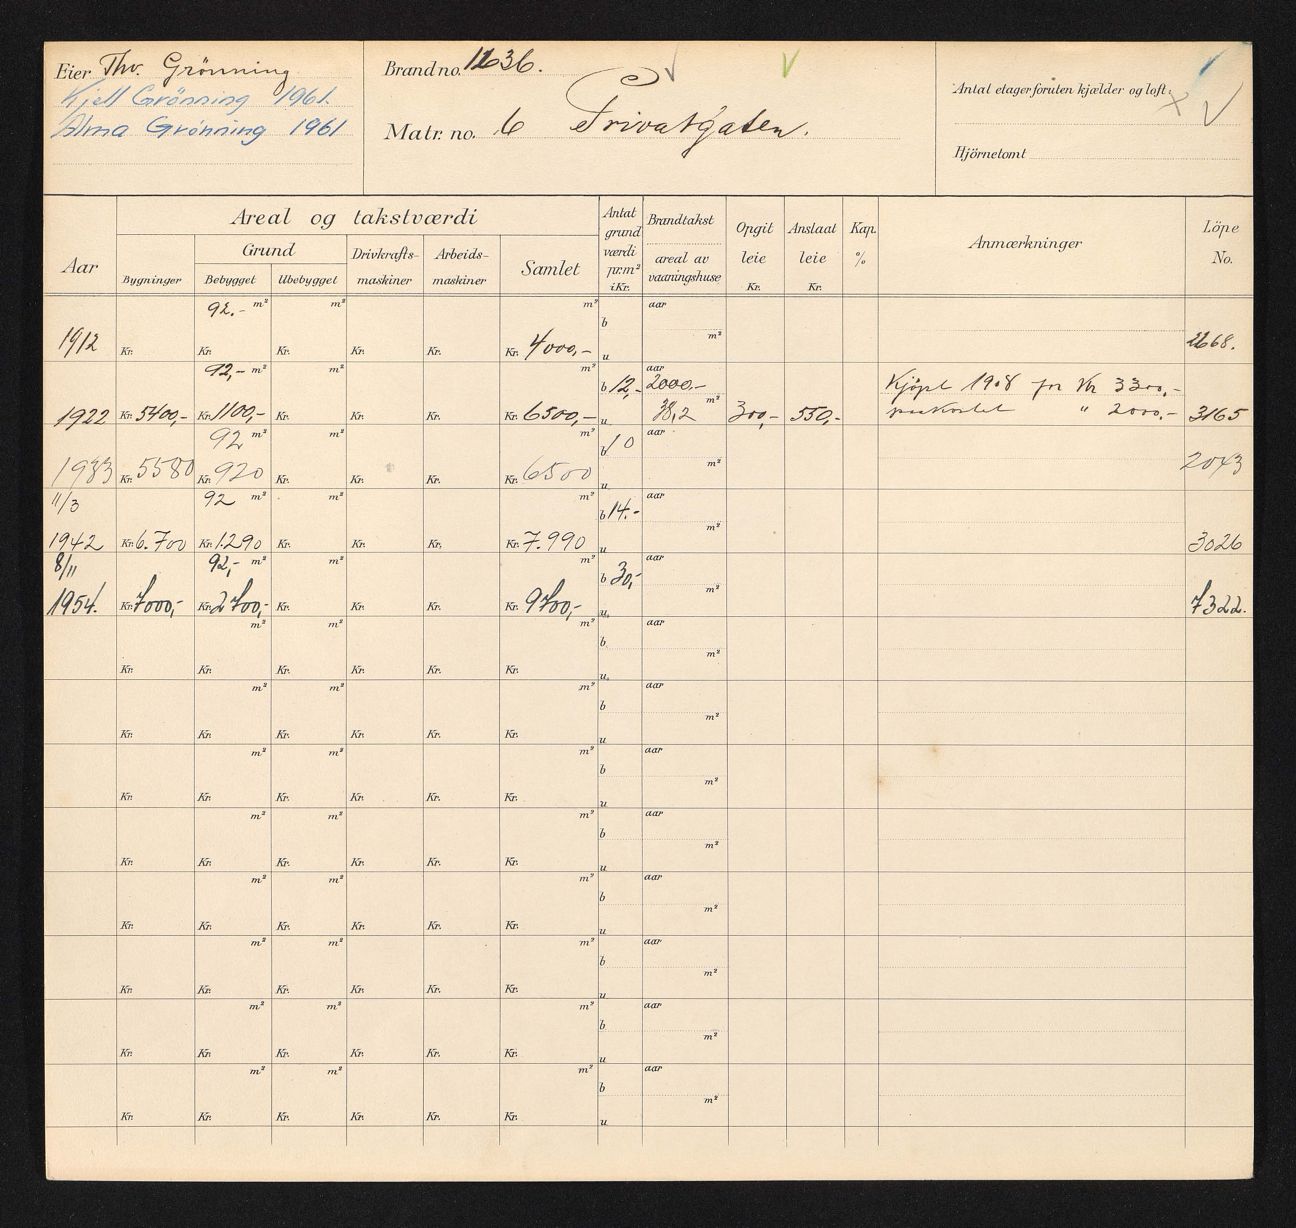 Eier Thv. Grönning
Kjell Grönning 1961.
Alma Grönning 1961
Brand no. 1636.
Matr. no. 6 Privatgaten.
Antal etager foruten kjælder og loft:
Hjörnetomt
Aar
Areal og takstværdi
Bygninger
Grund
Bebygget Ubebygget
Drivkrafts-maskiner
Arbeids-maskiner
Samlet
Antat grund værdi pr. m² i Kr.
Brandtakst
areal av vaaningshuse
Opgit leie Kr.
Anslaat leie Kr.
Kap. %
Anmærkninger
Löpe No.
92.- m² m² m² b aar
1912 Kr. Kr. Kr. Kr. Kr. Kr. 4000,- u m² 1668.
92,- m² m² m² b 12,- aar 2000.- Kjöpt 1908 for Kr 3300,-
1922 Kr. 5400,- Kr. 1100,- Kr. Kr. Kr. Kr. 6500,- u 38,2 m² 300,- 550,- paakostet " 2000,- 3165
92 m² m² m² b 10 aar
1933 Kr. 5580 Kr. 920 Kr. Kr. Kr. Kr. 6500 u m² 2043
11/3 92 m² m² m² b 14.- aar
1942 Kr. 6.700 Kr. 1.290 Kr. Kr. Kr. Kr. 7.990 u m² 3026
8/11 92,- m² m² m² b 30,- aar
1954. Kr. 7000,- Kr. 2700,- Kr. Kr. Kr. Kr. 9700,- u m² 7322.
m² m² m² b aar
Kr. Kr. Kr. Kr. Kr. Kr. u m²
m² m² m² b aar
Kr. Kr. Kr. Kr. Kr. Kr. u m²
m² m² m² b aar
Kr. Kr. Kr. Kr. Kr. Kr. u m²
m² m² m² b aar
Kr. Kr. Kr. Kr. Kr. Kr. u m²
m² m² m² b aar
Kr. Kr. Kr. Kr. Kr. Kr. u m²
m² m² m² b aar
Kr. Kr. Kr. Kr. Kr. Kr. u m²
m² m² m² b aar
Kr. Kr. Kr. Kr. Kr. Kr. u m²
m² m² m² b aar
Kr. Kr. Kr. Kr. Kr. Kr. u m²